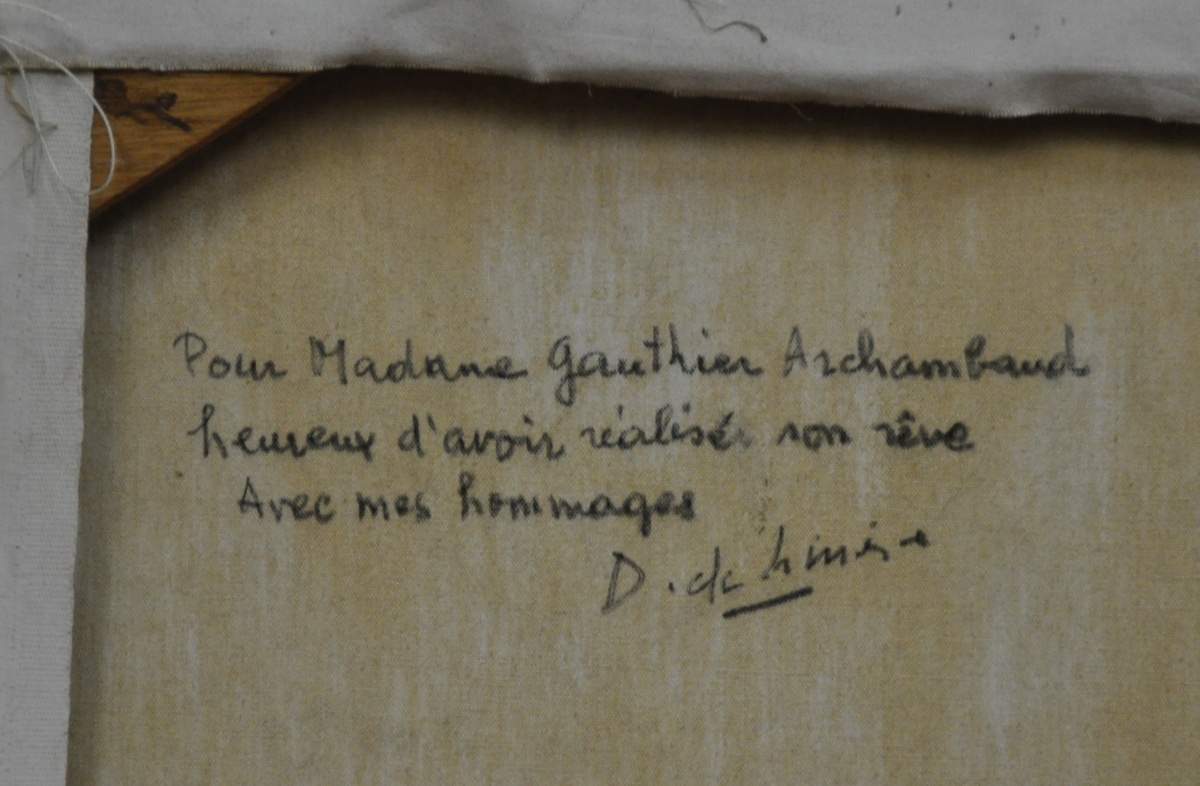 Pour Madame Gauthier Archambaud
heureux d'avoir réalisé son rêve
Avec mes hommages
D. de